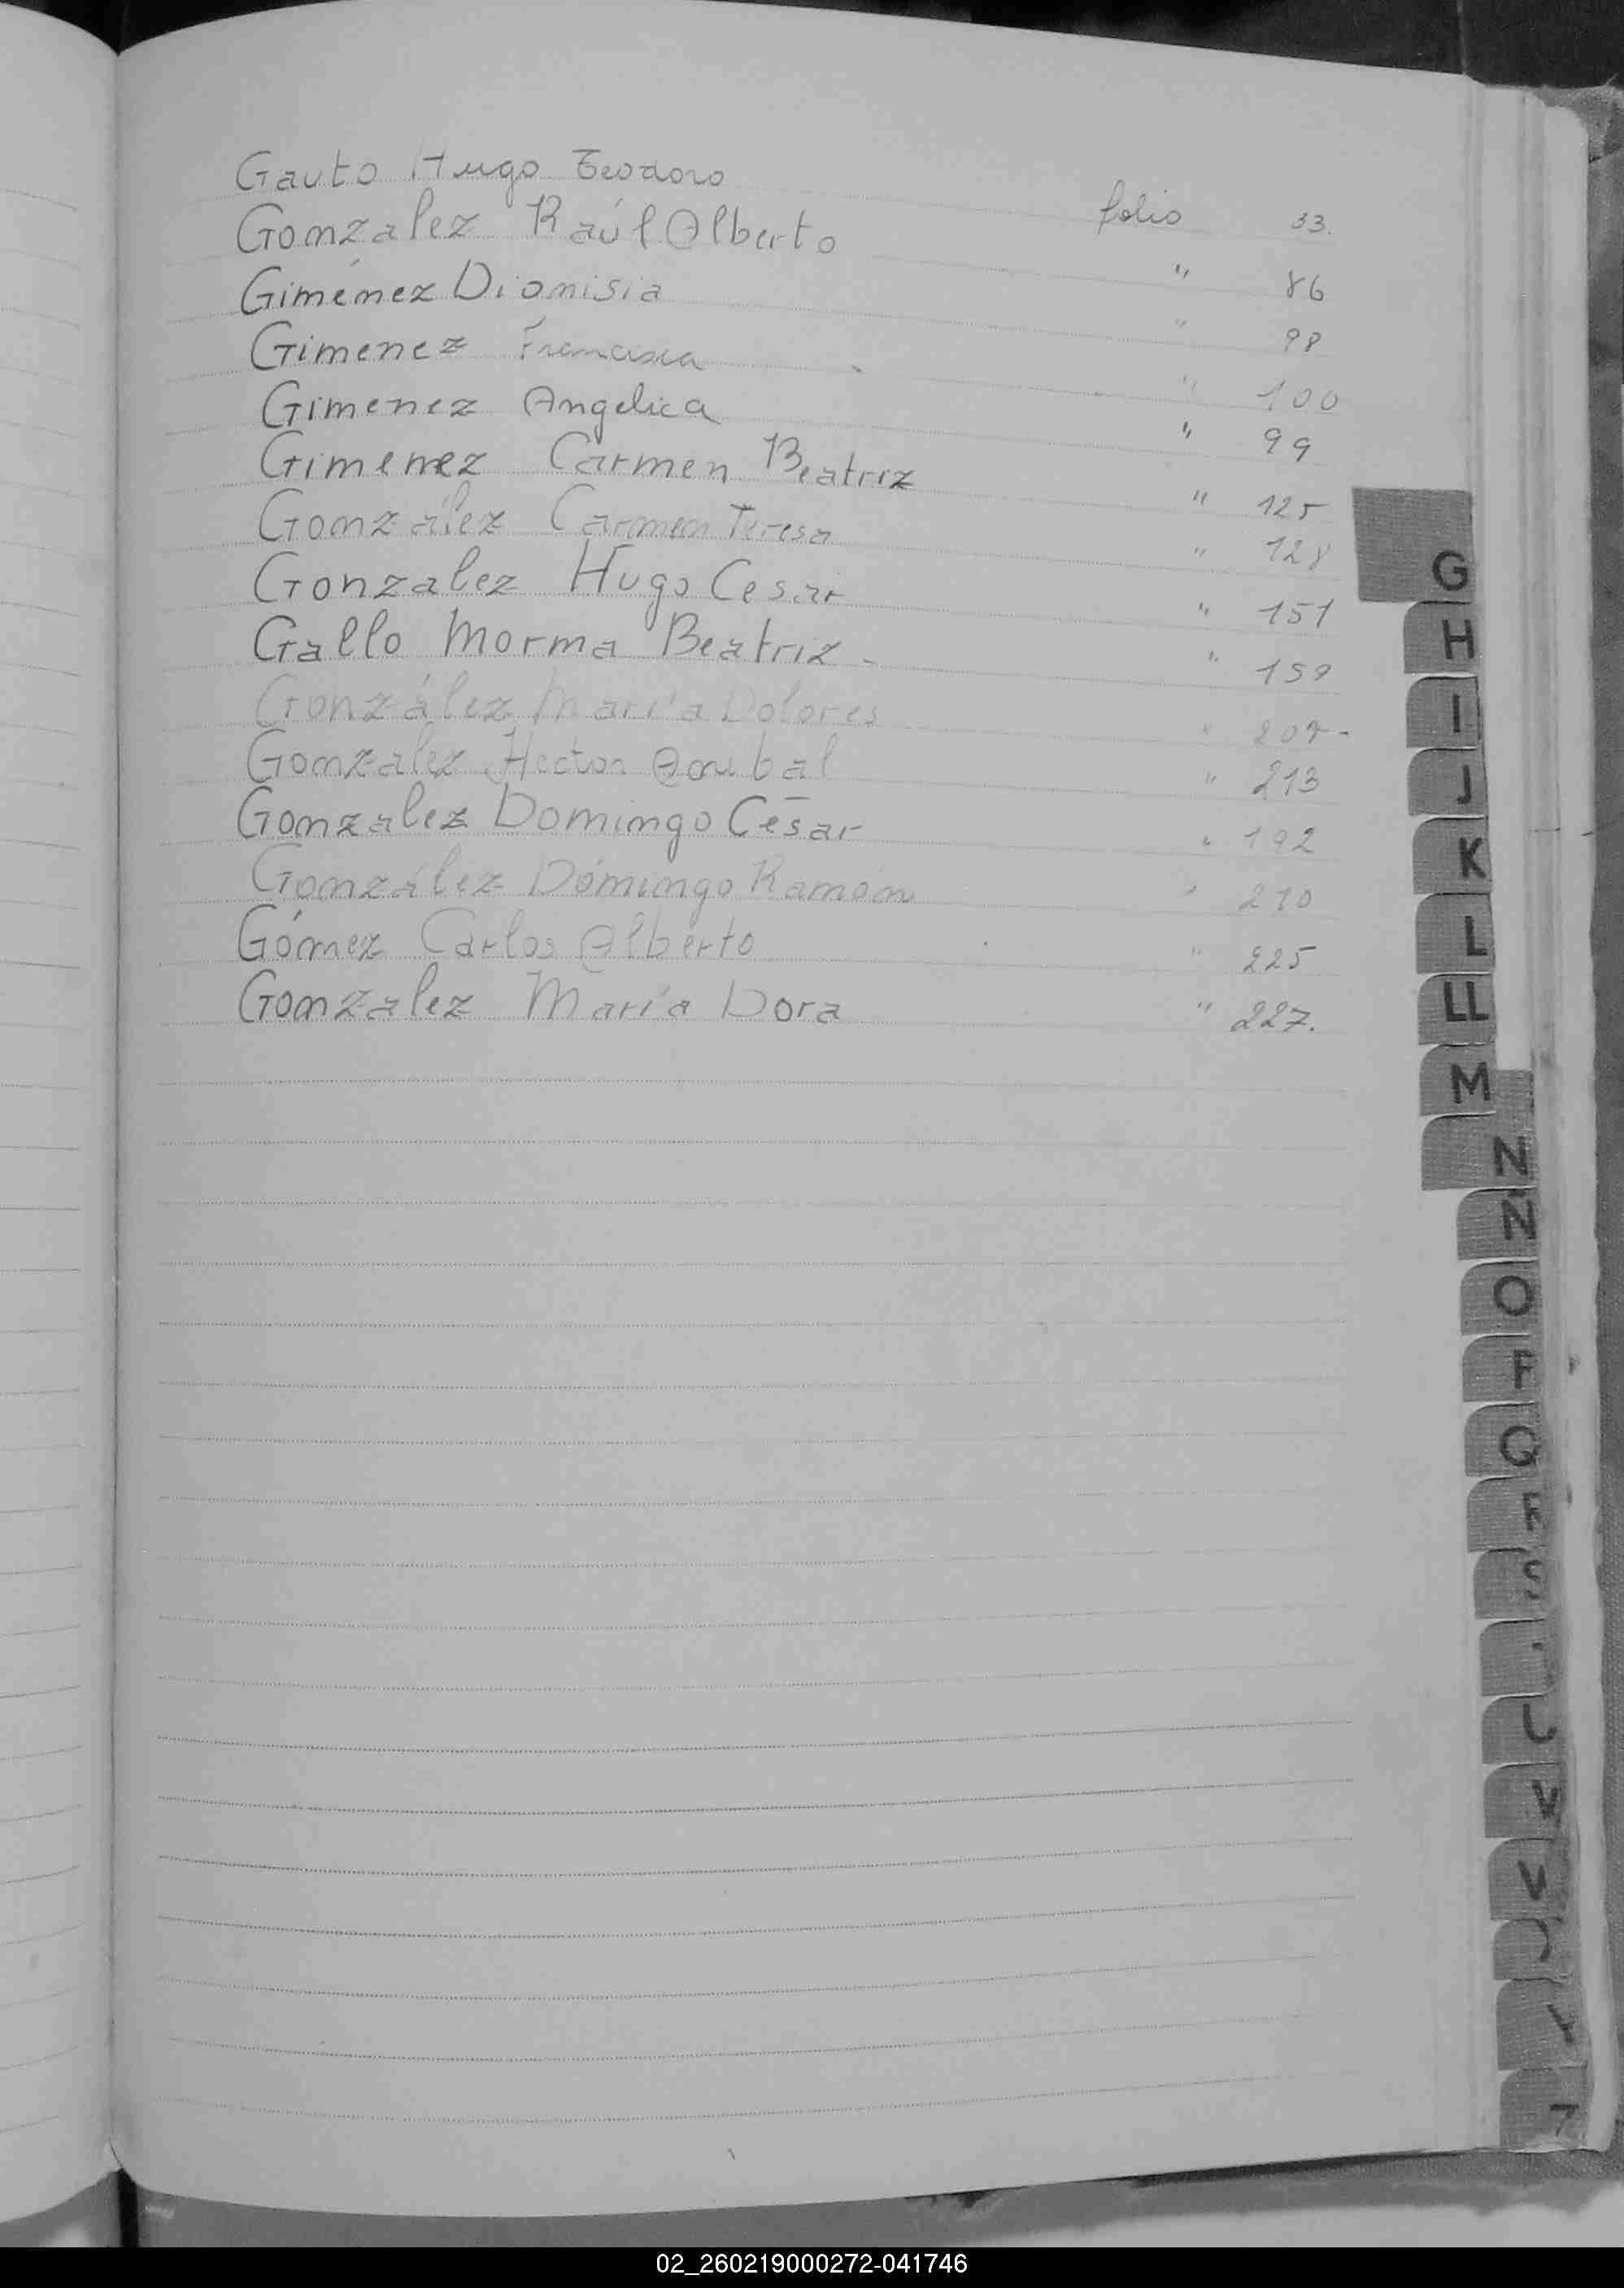 Gauto Hugo Teodoro folio 33.
Gonzalez Raúl Alberto " 86
Giménez Dionisia " 98
Gimenez Francisca " 100
Gimenez Angelica " 99
Gimenez Carmen Beatriz " 125
González Carmen Teresa " 128
Gonzalez Hugo Cesar " 151
Gallo Norma Beatriz - " 159
González María Dolores " 207-
Gonzalez Hector Anibal " 213
Gonzalez Domingo César " 192
González Domingo Ramón " 210
Gómez Carlos Alberto " 225
Gonzalez María Dora " 227.
G
H
I
J
K
L
LL
M
N
Ñ
O
P
Q
R
S
U
V
W
Y
Z
02_260219000272-041746